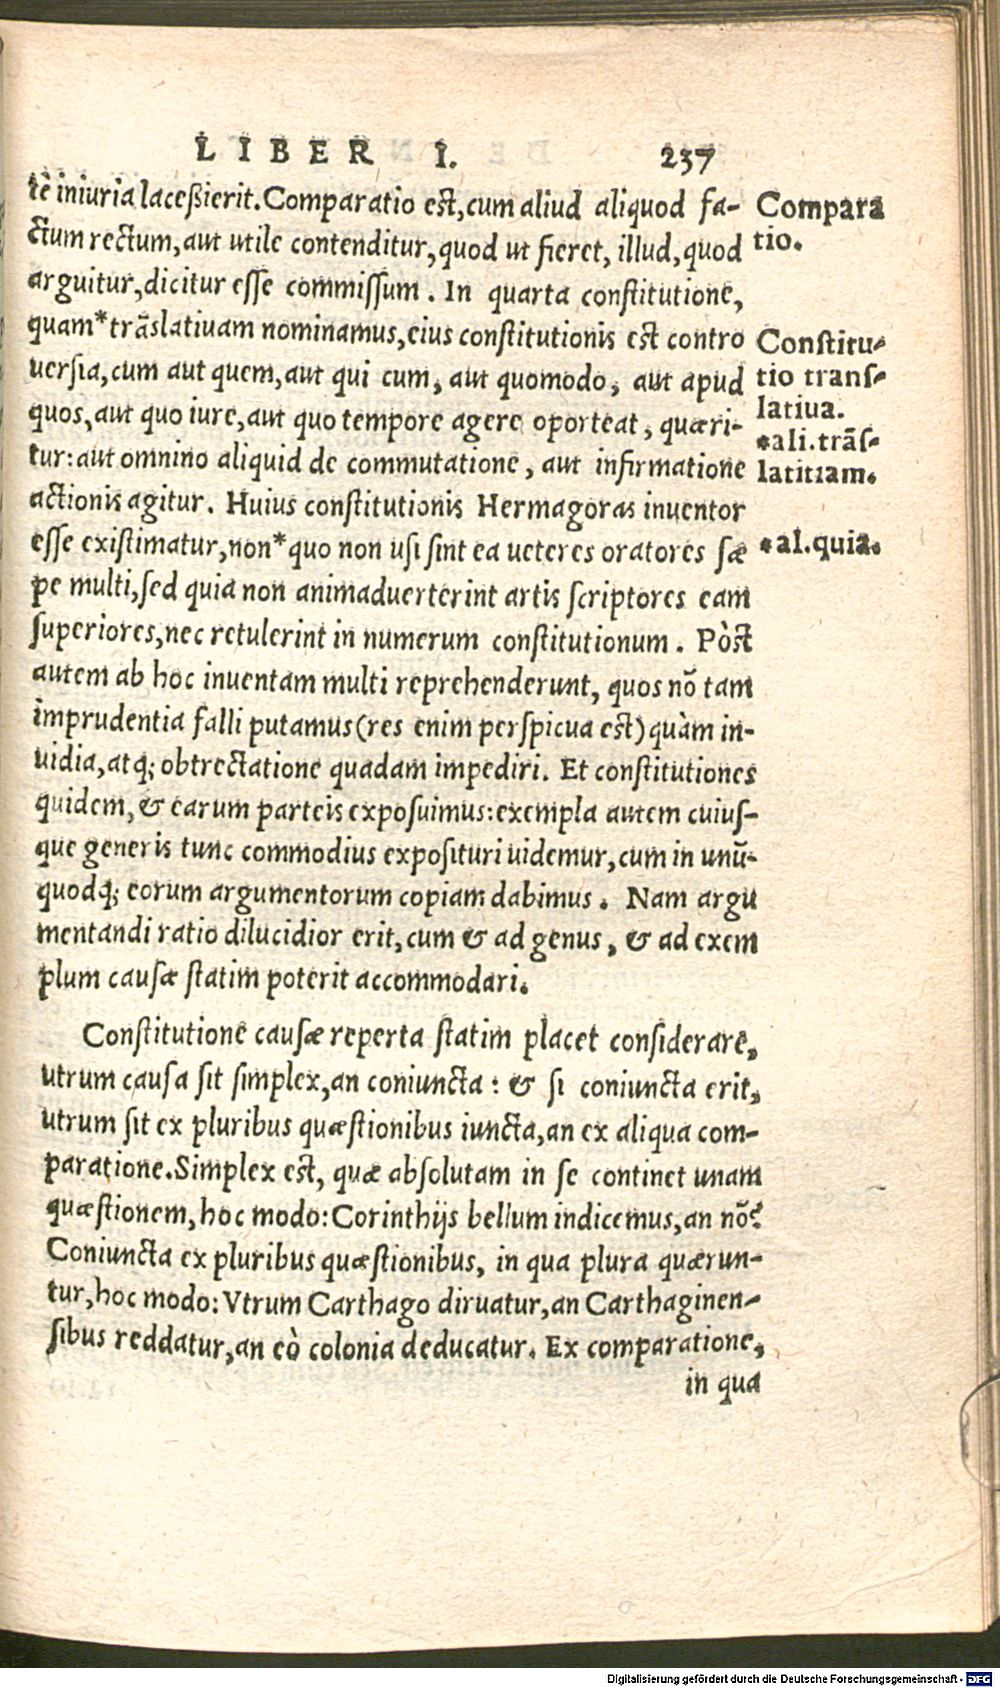 LIBER I. 237
tè iniuria laceßierit. Comparatio est, cum aliud aliquod fa-
ctum rectum, aut utile contenditur, quod ut fieret, illud, quod
arguitur, dicitur esse commissum. In quarta constitutione,
quam* trāslatiuam nominamus, eius constitutionis est contro
uersia, cum aut quem, aut qui cum, aut quomodo, aut apud
quos, aut quo iure, aut quo tempore agere oporteat, quæri-
tur: aut omnino aliquid de commutatione, aut infirmatione
actionis agitur. Huius constitutionis Hermagoras inuentor
esse existimatur, non* quo non usi sint ea ueteres oratores sæ
pe multi, sed quia non animaduerterint artis scriptores eam
superiores, nec retulerint in numerum constitutionum. Pòst
autem ab hoc inuentam multi reprehenderunt, quos nō tam
imprudentia falli putamus (res enim perspicua est) quàm in-
uidia, atq; obtrectatione quadam impediri. Et constitutiones
quidem, & earum parteis exposuimus: exempla autem cuius-
que generis tunc commodius exposituri uidemur, cum in unū-
quodq; eorum argumentorum copiam dabimus. Nam argu
mentandi ratio dilucidior erit, cum & ad genus, & ad exem
plum causæ statim poterit accommodari.
Constitutione causæ reperta statim placet considerare,
utrum causa sit simplex, an coniuncta: & si coniuncta erit,
utrum sit ex pluribus quæstionibus iuncta, an ex aliqua com-
paratione. Simplex est, quæ absolutam in se continet unam
quæstionem, hoc modo: Corinthijs bellum indicemus, an nō?
Coniuncta ex pluribus quæstionibus, in qua plura quærun-
tur, hoc modo: Vtrum Carthago diruatur, an Carthaginen-
sibus reddatur, an eò colonia deducatur. Ex comparatione,
in qua
Compara
tio.
Constitu-
tio trans-
latiua.
*ali. trās-
latitiam.
*al. quia.
Digitalisierung gefördert durch die Deutsche Forschungsgemeinschaft - DFG